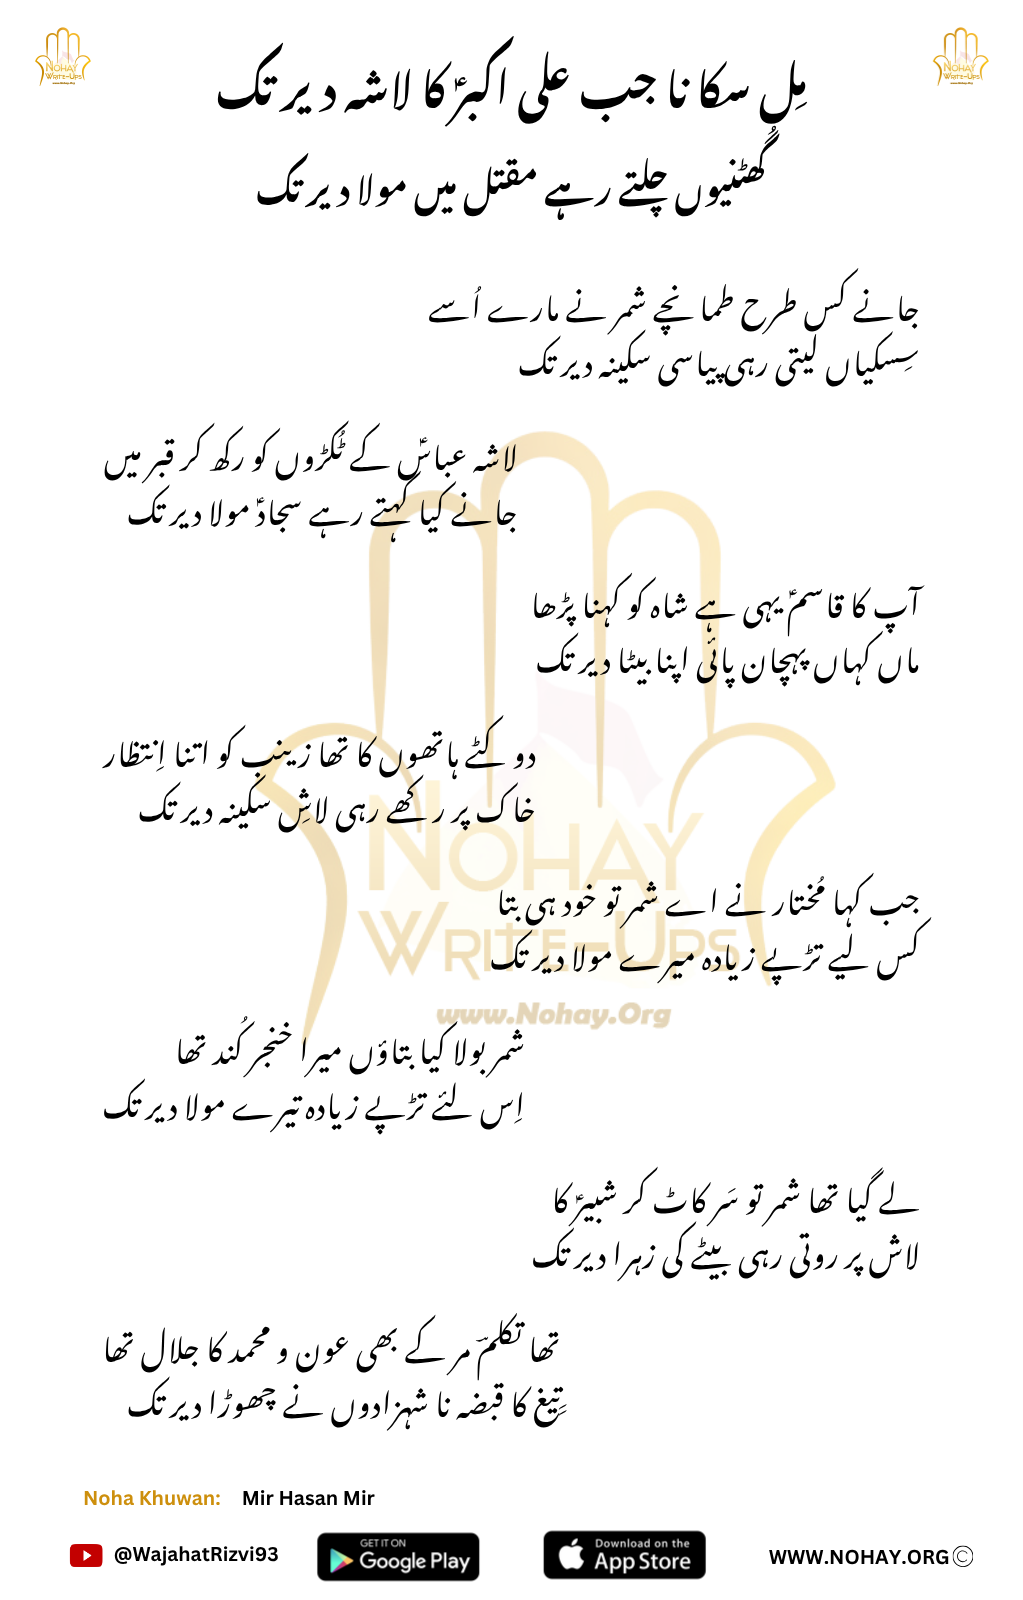 NOHAY
WRITE-UPS
www.Nohay.Org
NOHAY
WRITE-UPS
www.Nohay.Org
مِل سکا نا جب علی اکبرؑ کا لاشہ دیر تک
گُھٹنیوں چلتے رہے مقتل میں مولا دیر تک
جانے کس طرح طمانچے شمر نے مارے اُسے
سِسکیاں لیتی رہی پیاسی سکینہ دیر تک
لاشہ عباسؑ کے ٹُکڑوں کو رکھ کر قبر میں
جانے کیا کہتے رہے سجادؑ مولا دیر تک
آپ کا قاسمؑ یہی ہے شاہ کو کہنا پڑھا
ماں کہاں پہچان پائی اپنا بیٹا دیر تک
دو کٹے ہاتھوں کا تھا زینب کو اتنا اِنتظار
خاک پر رکھے رہی لاشِ سکینہ دیر تک
NOHAY
WRITE-UPS
www.Nohay.Org
جب کہا مُختار نے اے شمر تو خود ہی بتا
کس لیے تڑپے زیادہ میرے مولا دیر تک
شمر بولا کیا بتاؤں میرا خنجر کُند تھا
اِس لئے تڑپے زیادہ تیرے مولا دیر تک
لے گیا تھا شمر تو سَر کاٹ کر شبیرؑ کا
لاش پر روتی رہی بیٹے کی زہرا دیر تک
تھا تکلمؔ مر کے بھی عون و محمد کا جلال تھا
تِیغ کا قبضہ نا شہزادوں نے چھوڑا دیر تک
Noha Khuwan: Mir Hasan Mir
@WajahatRizvi93
GET IT ON
Google Play
Download on the
App Store
WWW.NOHAY.ORG©